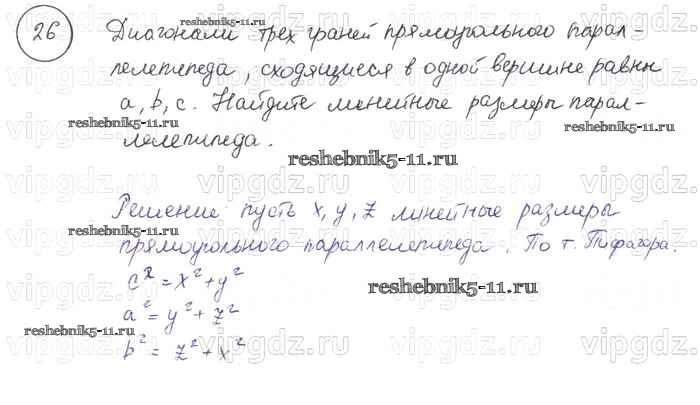 26 Диагонали трех граней прямоугольного парал-
лелепипеда, сходящиеся в одной вершине равны
a, b, c. Найдите линейные размеры парал-
лелепипеда.
Решение пусть x, y, z линейные размеры
прямоугольного параллелепипеда. По т. Пифагора.
c² = x² + y²
a² = y² + z²
b² = z² + x²
reshebnik5-11.ru
reshebnik5-11.ru
reshebnik5-11.ru
reshebnik5-11.ru
reshebnik5-11.ru
reshebnik5-11.ru
reshebnik5-11.ru
vipgdz.ru